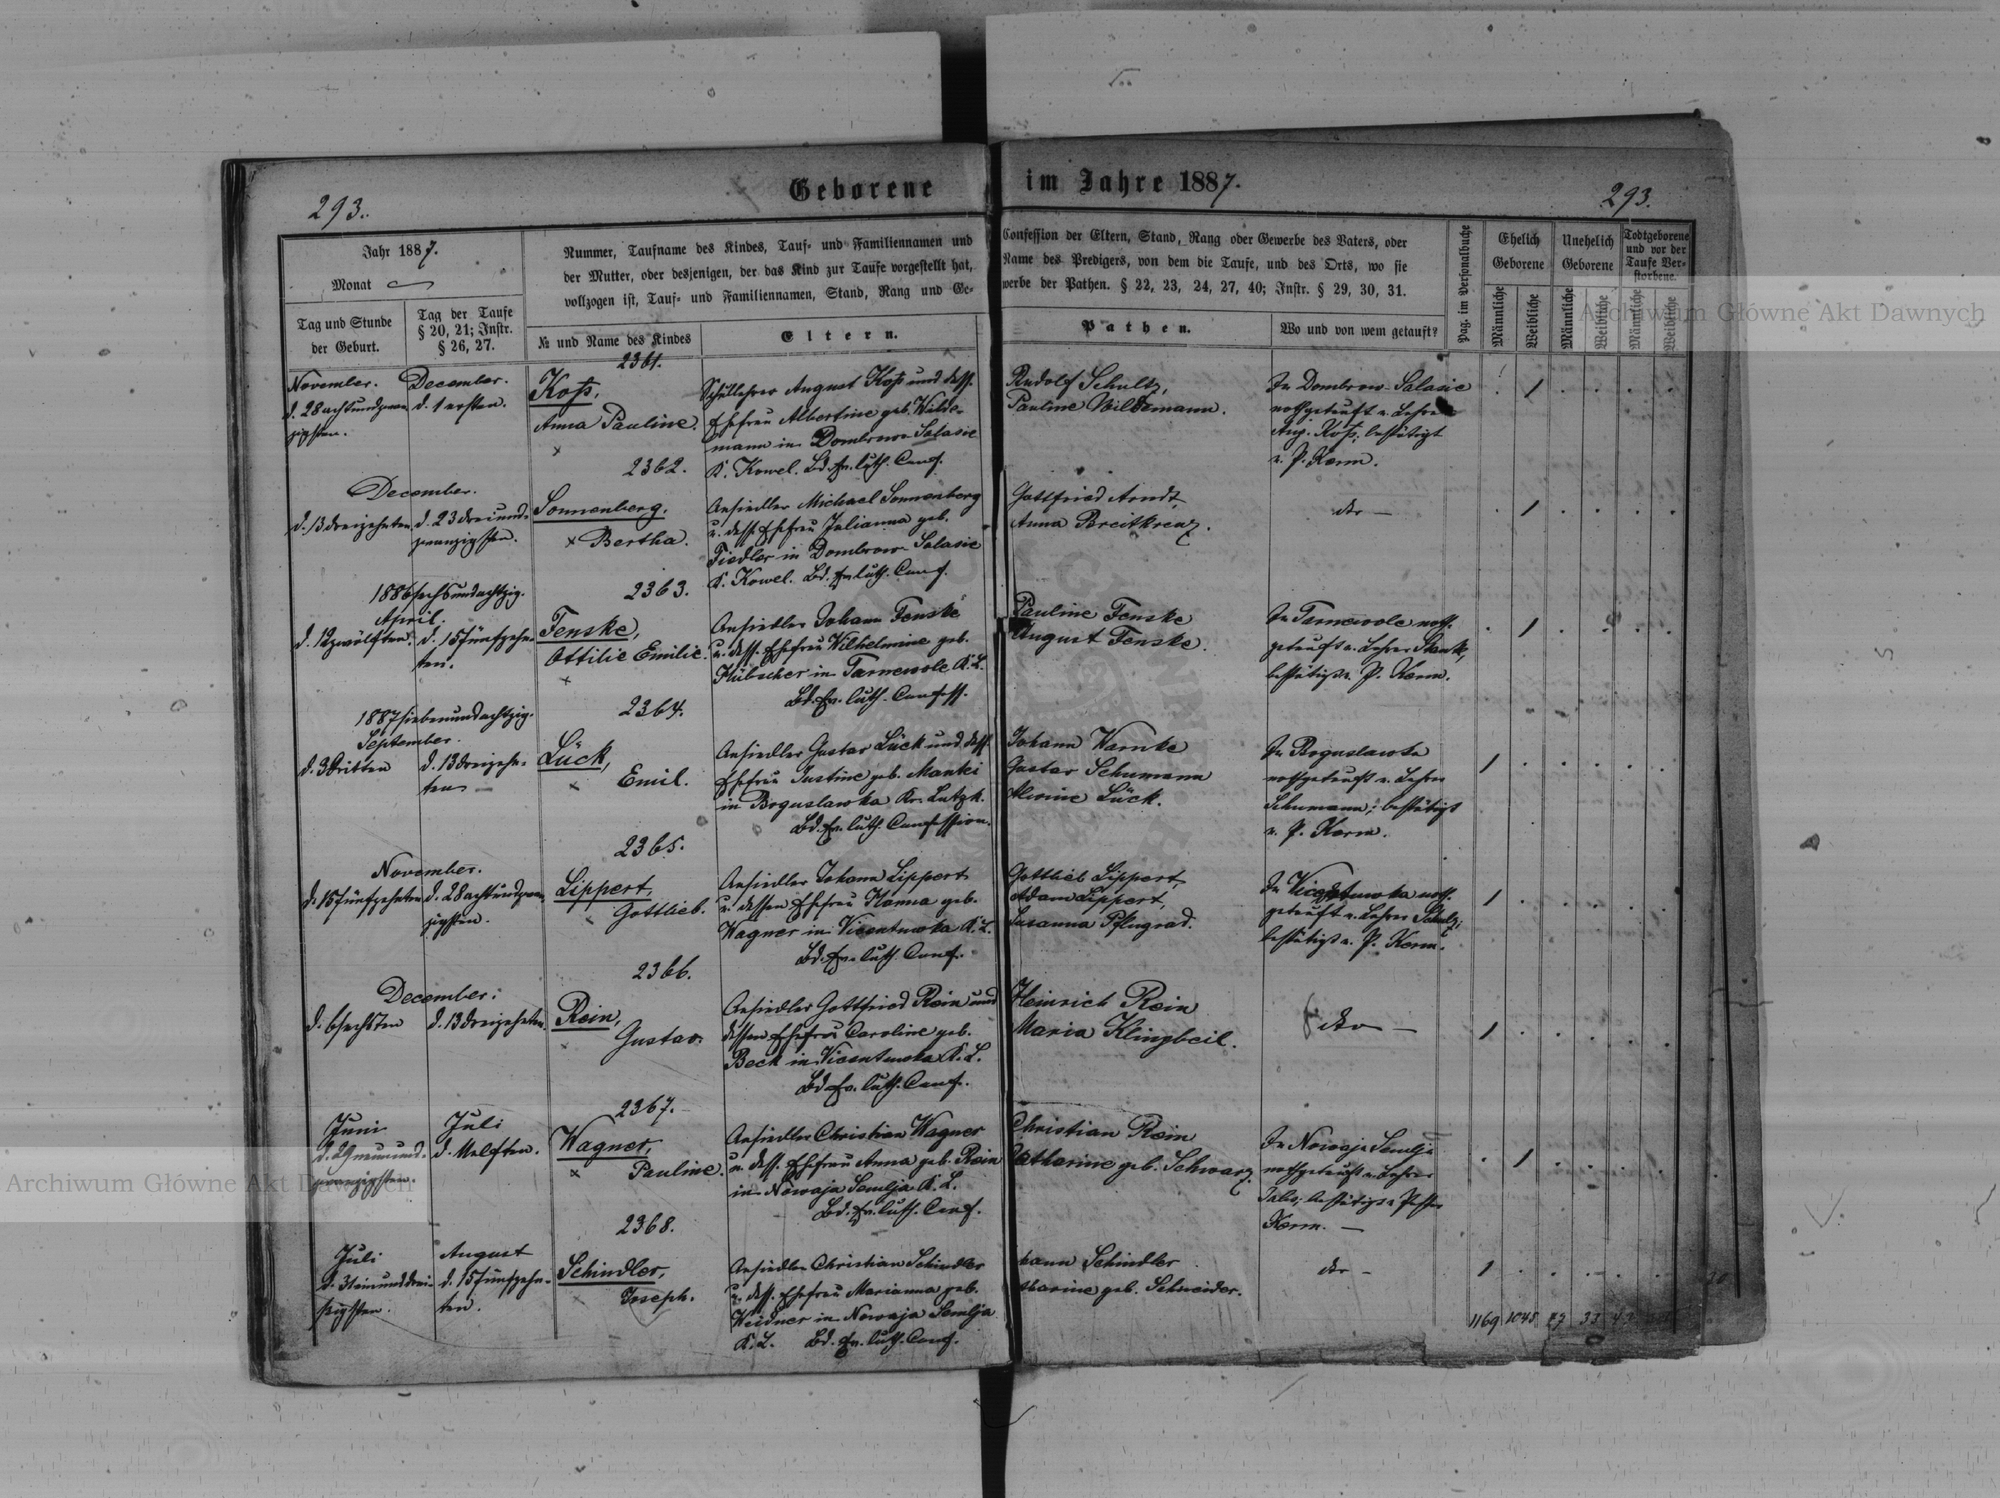 Geborene im Jahre 1887.
293.
293.
Jahr 1887.
Monat
Tag und Stunde
der Geburt.
Tag der Taufe
§ 20, 21; Instr.
§ 26, 27.
Nummer, Taufname des Kindes, Tauf- und Familiennamen und
der Mutter, oder desjenigen, der das Kind zur Taufe vorgestellt hat,
vollzogen ist, Tauf- und Familiennamen, Stand, Rang und Ge-
№ und Name des Kindes
Eltern.
Confession der Eltern, Stand, Rang oder Gewerbe des Vaters, oder
Name des Predigers, von dem die Taufe, und des Orts, wo sie
werbe der Pathen. § 22, 23, 24, 27, 40; Instr. § 29, 30, 31.
Pathen.
Wo und von wem getauft?
Pag. im Personalbuche
Ehelich
Geborene
Unehelich
Geborene
Todtgeborene
und vor der
Taufe Ver-
storbene.
Männliche
Weibliche
Männliche
Weibliche
Männliche
Weibliche
2361.
November.
d. 28 achtundzwan-
zigsten.
December.
d. 1 ersten.
Koß,
Anna Pauline.
Schullehrer August Koß und dess.
Ehefrau Albertine geb. Wilde-
mann in Dombrow-Salasie
K. Kowel. Bd. Ev. luth. Conf.
Rudolf Schultz,
Pauline Wildemann.
In Dombrow-Salasie
nothgetauft v. Lehrer
Aug. Koß, bestätigt
v. P. Kerm.
2362.
December.
d. 13 dreizehnten
d. 23 dreiund-
zwanzigsten.
Sonnenberg,
Bertha.
Ansiedler Michael Sonnenberg
u. dess. Ehefrau Julianna geb.
Fiedler in Dombrow-Salasie
K. Kowel. Bd. Ev. luth. Conf.
Gottfried Arndt,
Anna Breitkreuz.
dto —
2363.
1886 sechsundachtzig.
April.
d. 12 zwölften.
d. 15 fünfzehn-
ten.
Fenske,
Ottilie Emilie.
Ansiedler Johann Fenske
u. dess. Ehefrau Wilhelmine geb.
Hübscher in Tarnewole K. L.
Bd. Ev. luth. Confess.
Pauline Fenske
August Fenske.
In Tarnewole noth-
getauft v. Lehrer
bestätigt v. P. Kerm.
2364.
1887 siebenundachtzig.
September.
d. 3 dritten
d. 13 dreizehn-
ten
Lück,
Emil.
Ansiedler Gustav Lück und dess.
Ehefrau Justine geb. Mantei
in Boguslawka Kr. Lutzk.
Bd. Ev. luth. Confession.
Johann Warnke
Gustav Schumann
Alwine Lück.
In Boguslawka
nothgetauft v. Lehrer
Schumann; bestätigt
v. P. Kerm.
2365.
November.
d. 15 fünfzehnten
d. 28 achtundzwan-
zigsten.
Lippert,
Gottlieb.
Ansiedler Johann Lippert
u. dessen Ehefrau Hanna geb.
Wagner in Vicentuwka K. L.
Bd. Ev. luth. Conf.
Gottlieb Lippert,
Adam Lippert,
Susanna Pflugrad.
In Vicentuwka noth-
getauft v. Lehrer Schulz;
bestätigt v. P. Kerm.
2366.
December.
d. 6 sechsten
d. 13 dreizehnten
Rein,
Gustav.
Ansiedler Gottfried Rein und
dessen Ehefrau Caroline geb.
Beck in Vicentuwka K. L.
Bd. Ev. luth. Conf.
Heinrich Rein
Maria Klingbeil.
dto —
2367.
Juni
d. 29 neunund-
zwanzigsten.
Juli
d. 11 elften.
Wagner,
Pauline.
Ansiedler Christian Wagner
u. dess. Ehefrau Anna geb. Rein
in Nowaja Semlja K. L.
Bd. Ev. luth. Conf.
Christian Rein
Katharine geb. Schwarz.
In Nowaja Semlja
nothgetauft v. Lehrer
bestätigt v. Pastor
Kerm. —
2368.
Juli
d. 31 einunddrei-
ßigsten.
August
d. 15 fünfzehn-
ten.
Schindler,
Joseph.
Ansiedler Christian Schindler
u. dess. Ehefrau Marianna geb.
Weidner in Nowaja Semlja
K. L. Bd. Ev. luth. Conf.
hann Schindler
tharine geb. Schneider.
dto —
1169 1045 33
Archiwum Główne Akt Dawnych
Archiwum Główne Akt Dawnych